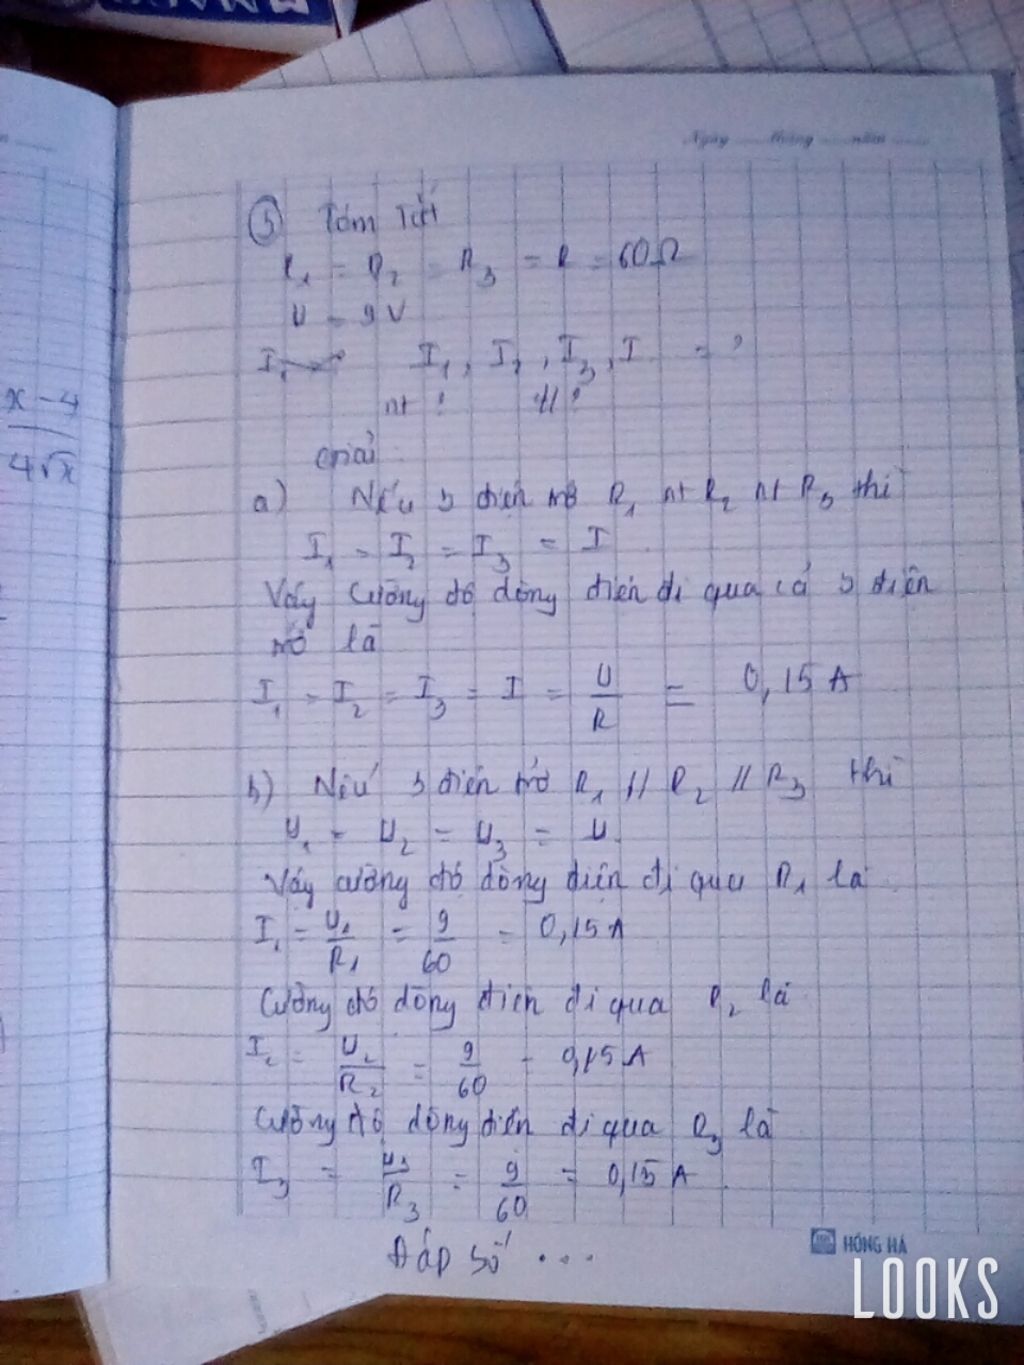 Ngày tháng năm
③ Tóm Tắt
R₁ = R₂ = R₃ = R = 60Ω
U = 9V
I₁, I₂, I₃, I = ?
nt ? // ?
Giải
x - 4
4√x
a) Nếu 3 điện trở R₁ nt R₂ nt R₃ thì
I₁ = I₂ = I₃ = I
Vậy cường độ dòng điện đi qua cả 3 điện
trở là
I₁ = I₂ = I₃ = I = U/R = 0,15 A
b) Nếu 3 điện trở R₁ // R₂ // R₃ thì
U₁ = U₂ = U₃ = U
Vậy cường độ dòng điện đi qua R₁ là
I₁ = U₁/R₁ = 9/60 = 0,15A
Cường độ dòng điện đi qua R₂ là
I₂ = U₂/R₂ = 9/60 = 0,15A
Cường độ dòng điện đi qua R₃ là
I₃ = U₃/R₃ = 9/60 = 0,15 A
Đáp số ...
HỒNG HÀ
LOOKS